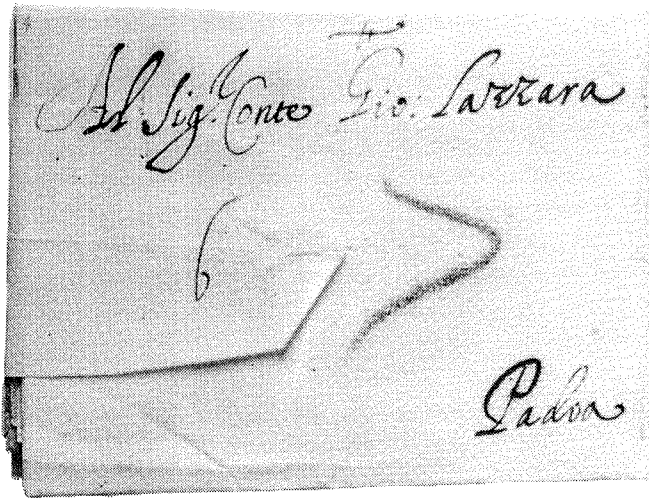 Al Sig.r Conte Gio: Lazzara
6
Padoa